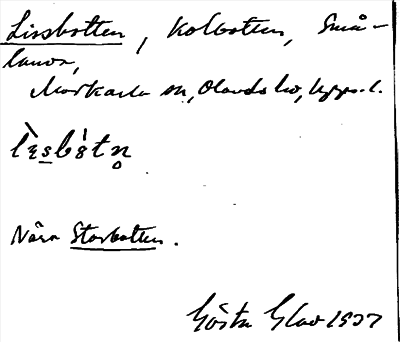 Lissbotten, Kolbotten, Små-
landa,
Morkarla sn, Olands hd, Upps. l.
lɪ̀sbótn̥
Nära Storbotten.
Gösta Glad 1937